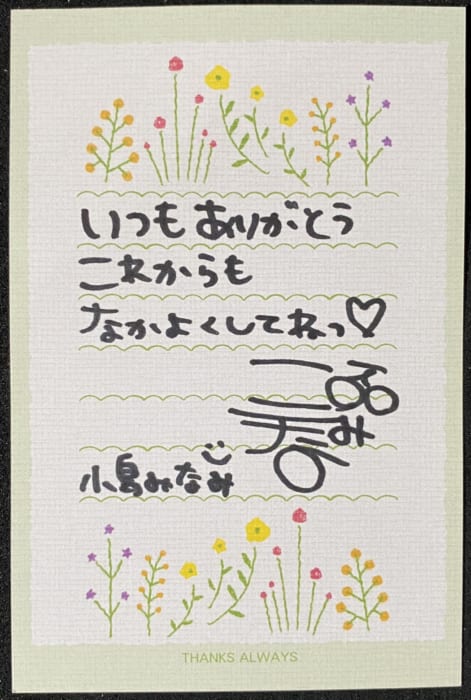 いつもありがとう
これからも
なかよくしてねっ♡
小島みなみ
THANKS ALWAYS